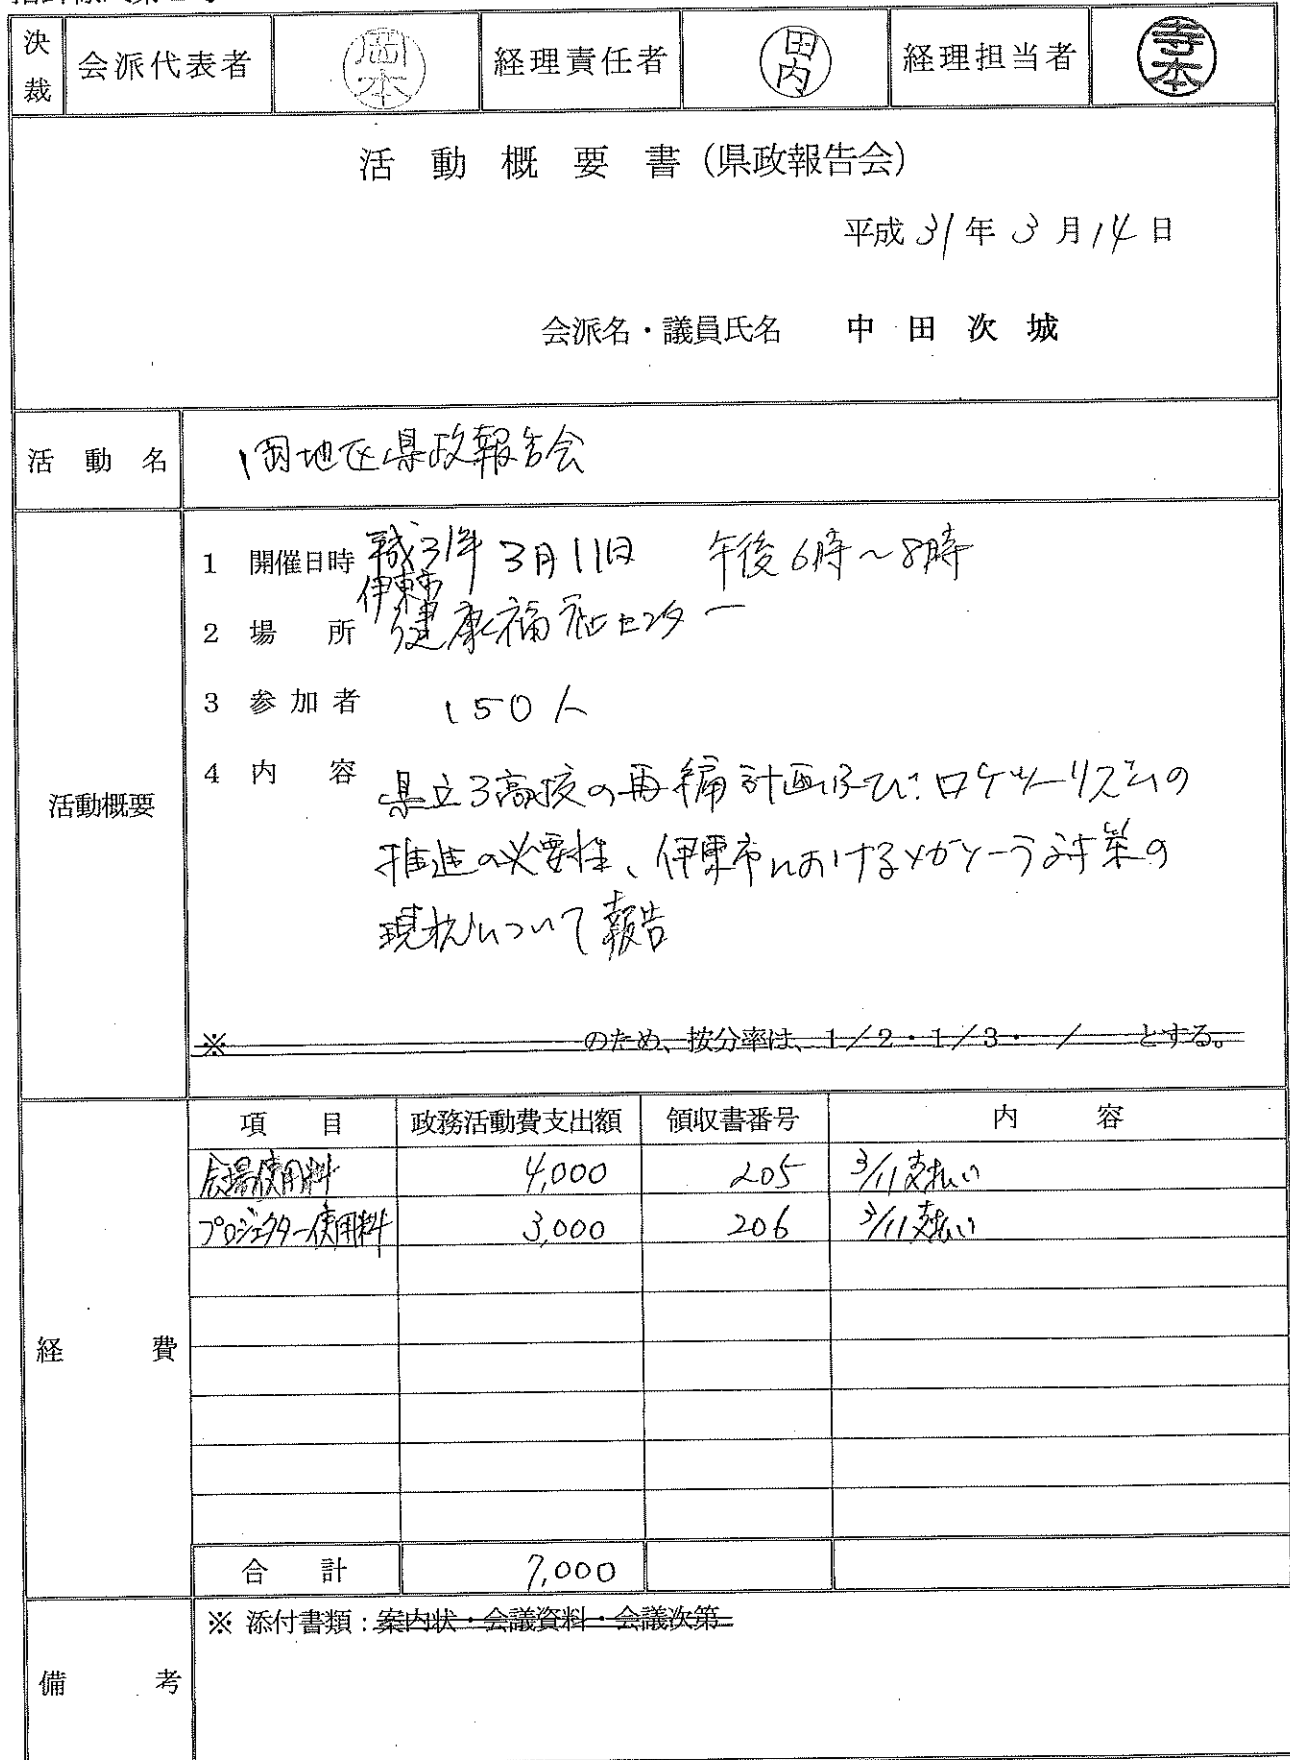 決裁 会派代表者 岡本 経理責任者 田内 経理担当者 寺本
活動概要書(県政報告会)
平成31年3月14日
会派名・議員氏名 中田次城
活動名 岡地区県政報告会
活動概要
1 開催日時 平成31年3月11日 午後6時~8時
2 場所 伊東市健康福祉センター
3 参加者 150人
4 内容 県立3高校の再編計画及び、ロケツーリズムの
推進の必要性、伊東市におけるメガソーラ対策の
現状について報告
※ のため、按分率は、1/2・1/3・ / とする。
経費
項目 政務活動費支出額 領収書番号 内容
会場使用料 4,000 205 3/11支払い
プロジェクター使用料 3,000 206 3/11支払い
合計 7,000
備考
※ 添付書類:案内状・会議資料・会議次第